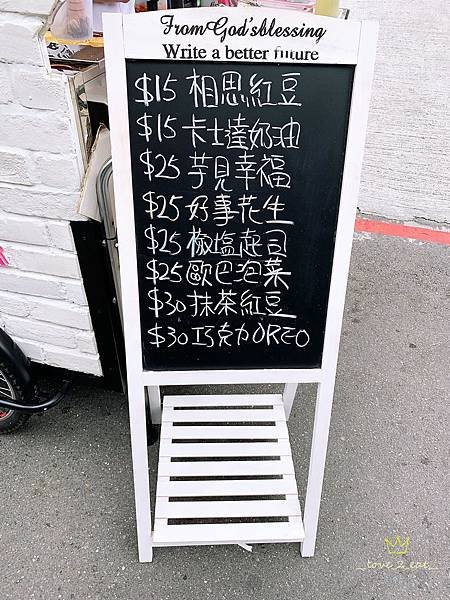 From God'sblessing
Write a better future
$15 相思紅豆
$15 卡士達奶油
$25 芋見幸福
$25 好事花生
$25 椒塩起司
$25 歐巴泡菜
$30 抹茶紅豆
$30 巧克力OREO
love 2 eat